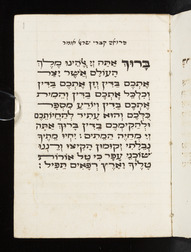 ברוך אתה יי אלהינו מלך
העולם אשר יצר
אתכם בדין וזן אתכם בדין
וכלכל אתכם בדין והמית
אתכם בדין ויודע מספר
כלכם והוא עתיד להחיותכם
ולהקימכם בדין ברוך אתה
יי מחיה המתים: יחיו מתיך
נבלתי יקומון הקיצו ורננו
שוכני עפר כי טל אורות
טליך וארץ רפאים תפיל: